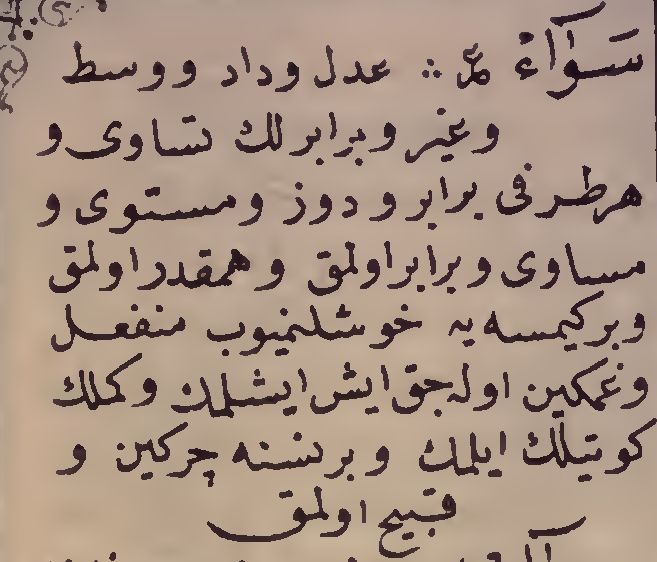 سَوَآءْ عر ∴ عدل وداد ووسط
وغير وبرابرلك تساوى و
هرطرفى برابر و دوز ومستوى و
مساوى وبرابراولمق وهمقدراولمق
وبركيمسه يه خوشلنميوب منفعل
وغمكين اوله جق ايش ايشلمك وكملك
كوتيلك ايلمك وبرنسنه چركين و
قبيح اولمق